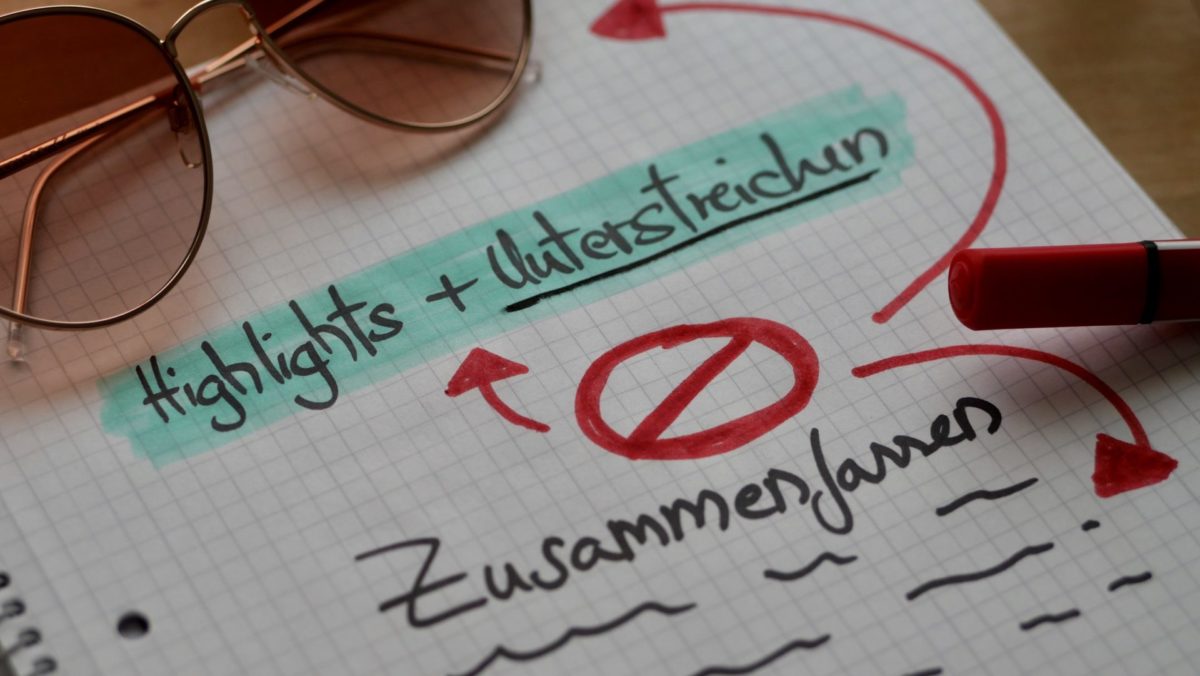 Highlights + Unterstreichen
Zusammenfassen